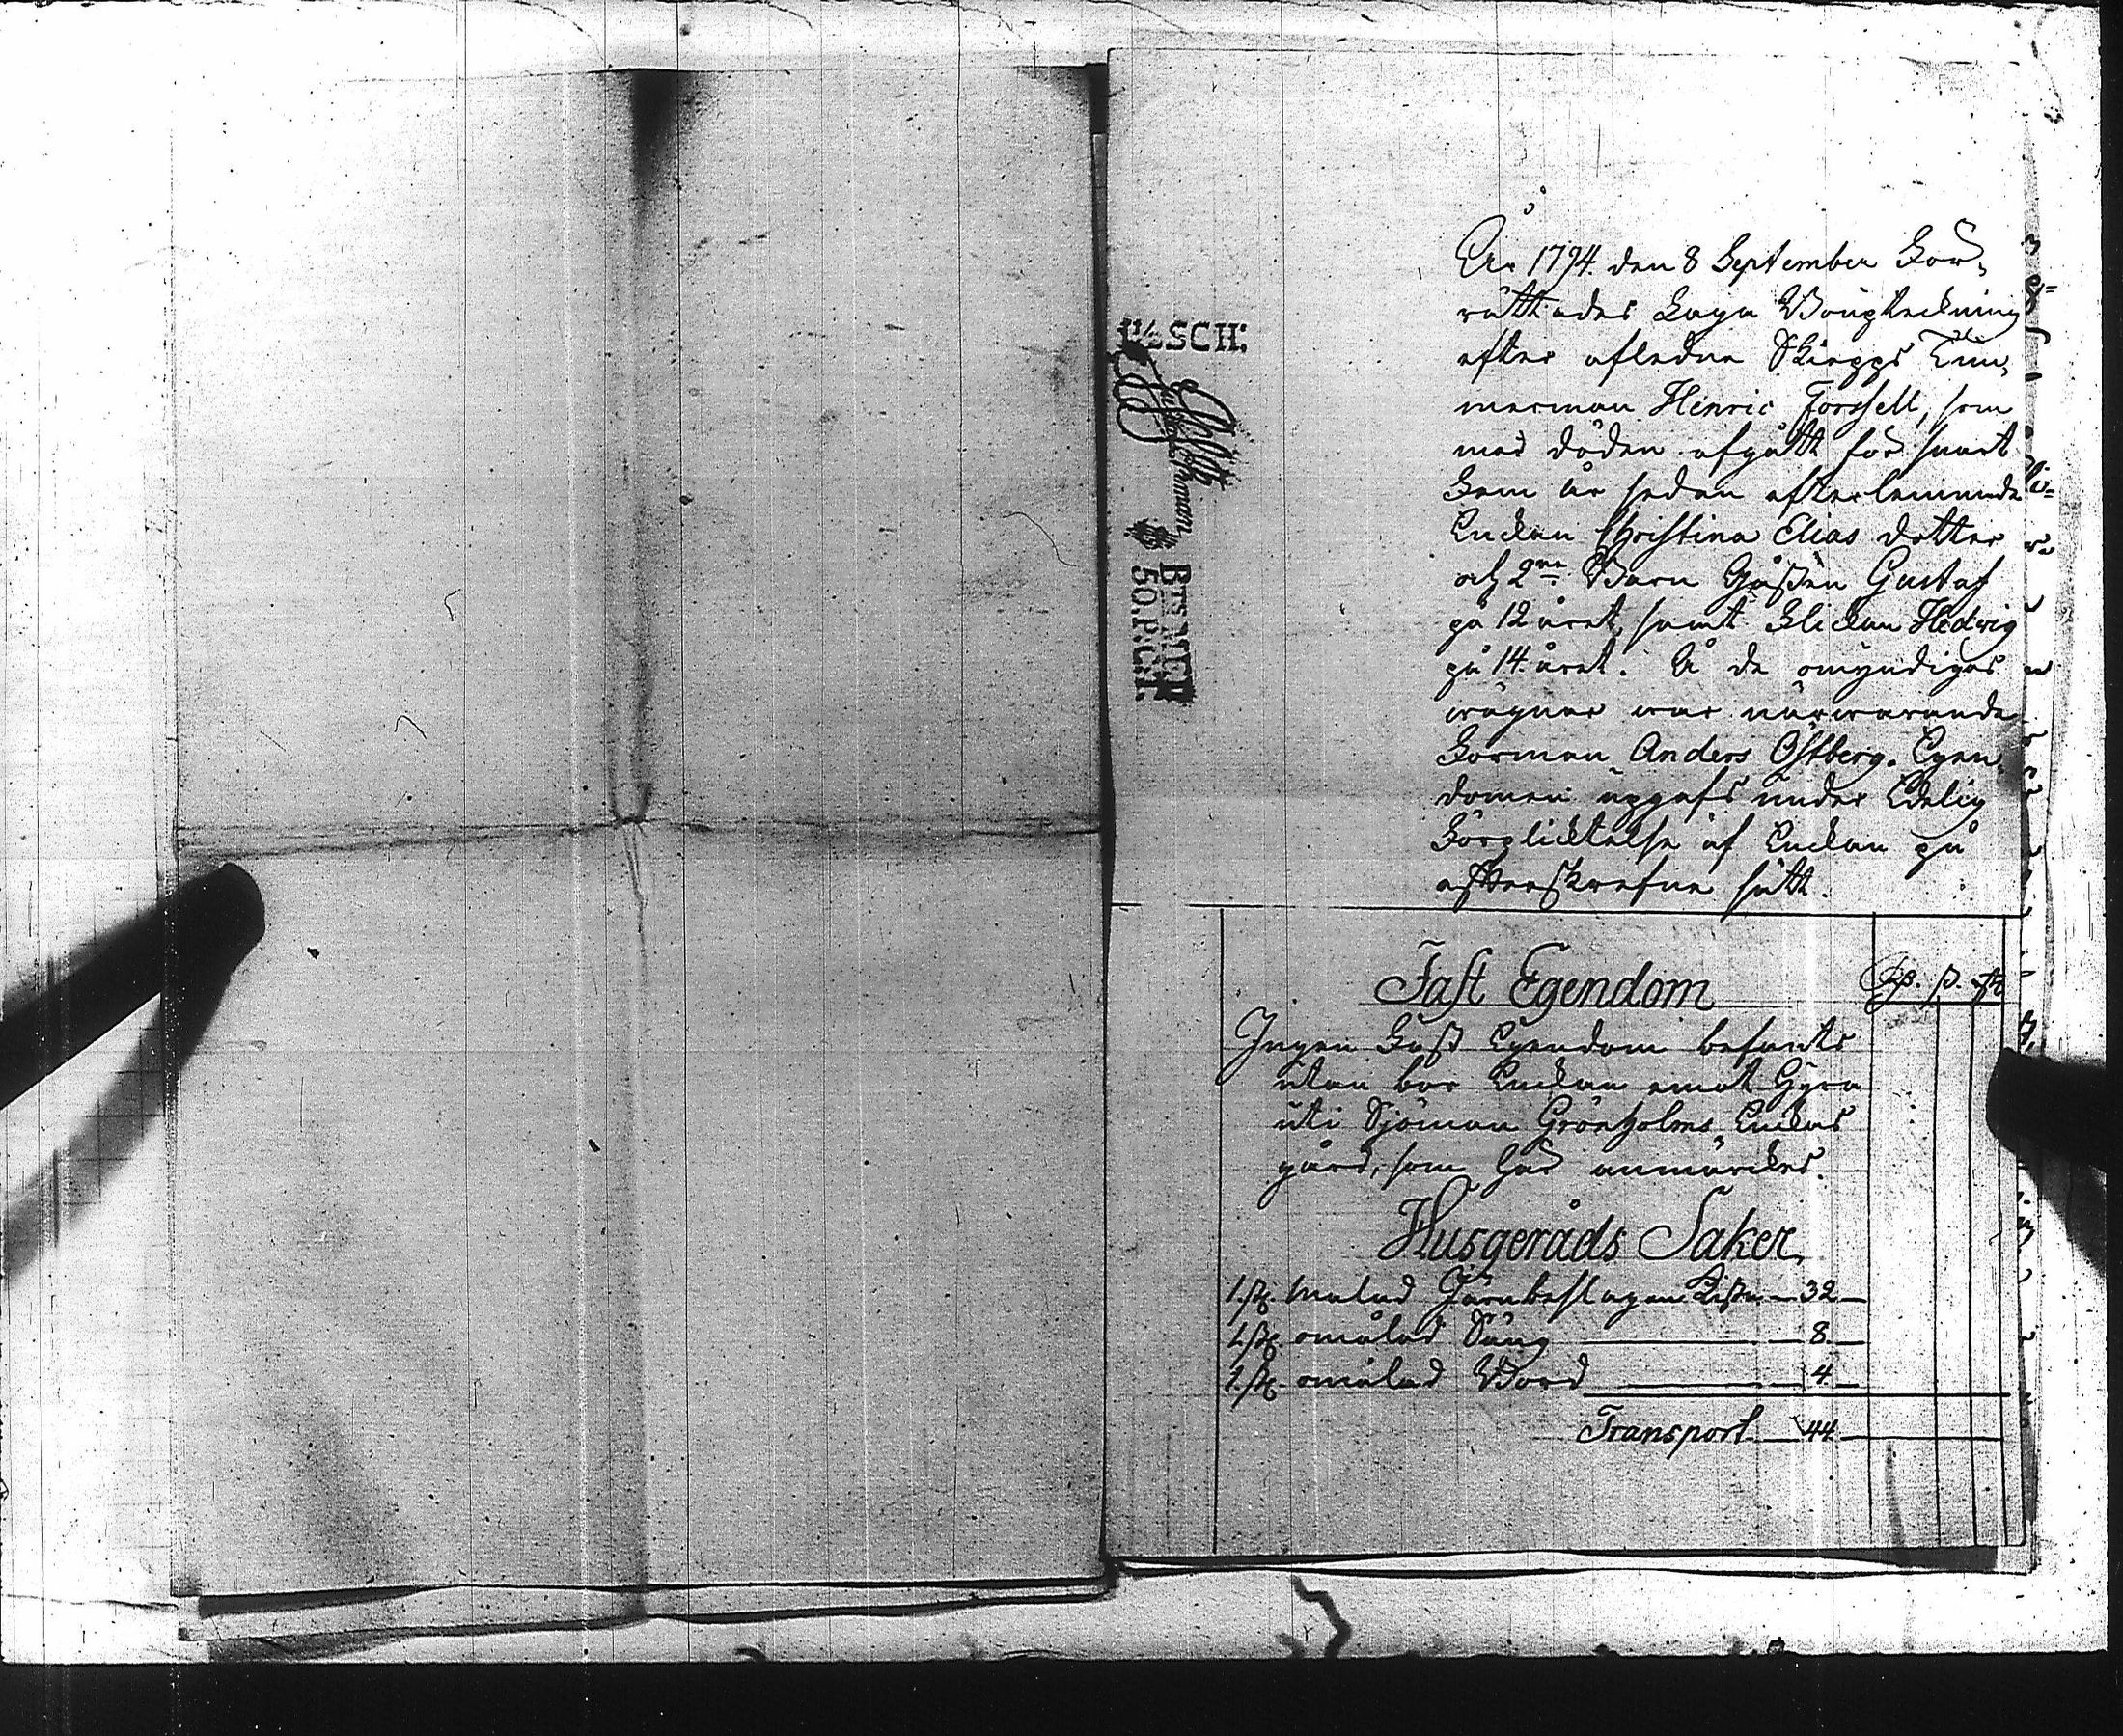 År 1794. den 8 September För,
rättades Laga Bouptekning
efter afledne Skiepps Tim,
merman Henric Forssell, som
med döden afgått för snart
Fem år sedan efterlemnande
Enckan Christina Elias dotter
och 2ne Barn Gåssen Gustaf
på 12 året, samt Flickan Hedvig
på 14 året. Å de omyndigas
wägnar war närwarande
Forman Anders Östberg. Egen,
domen upgafs under Edelig
Förplicktelse af Enckan på
efterskrefne sätt.
¼ SCH:
BTS MED
50. P: CT.
Fast Egendom
Rß. ß. rst
Ingen Fast Egendom befants
utan bor Enckan emot Hyra
uti Sjöman Grönholms Enckas
gård, som här anmärckes.
Husgeråds Saker
1. st. Målad Järnbeslagen Kista — 32 —
1. st. omålad Säng — 8 —
1. st. omålad Bord — 4 —
Transport — 44 —